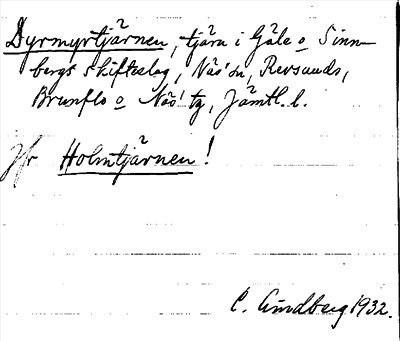 Dyrmyrtjärnen, tjärn i Gåle o Sinn-
bergs skifteslag, Näs' sn, Revsunds,
Brunflo o Näs' tg, Jämtl. l.
Jfr Holmtjärnen!
C. Lindberg 1932.